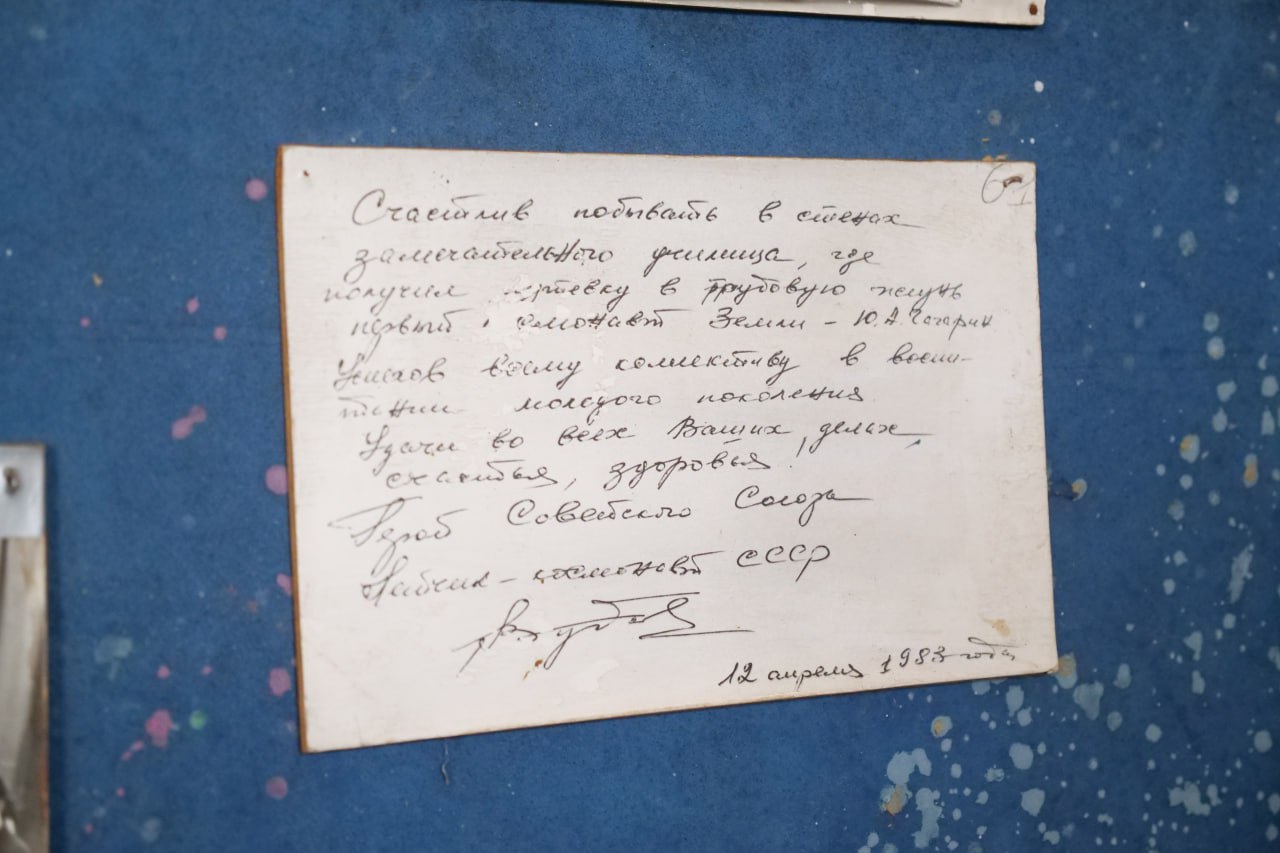 Счастлив побывать в стенах
замечательного училища, где
получил путевку в трудовую жизнь
первый космонавт Земли - Ю.А. Гагарин
Успехов всему коллективу в воспи-
тании молодого поколения
Удачи во всех Ваших делах,
счастья, здоровья!
Герой Советского Союза
Летчик-космонавт СССР
12 апреля 1983 года